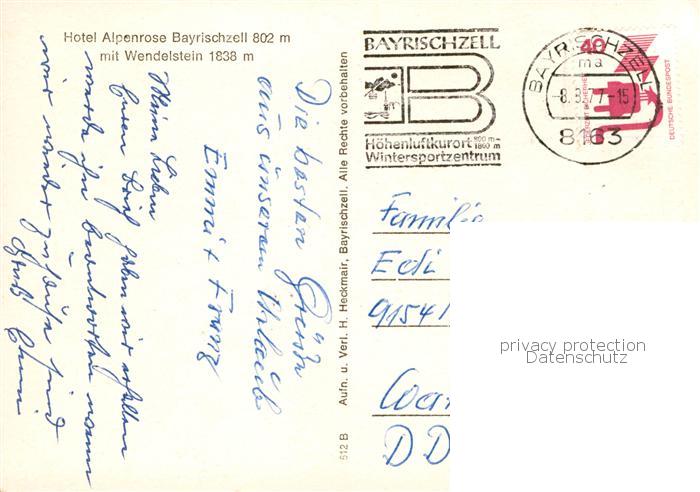 Hotel Alpenrose Bayrischzell 802 m
mit Wendelstein 1838 m
Meine Lieben
Euren Brief haben wir erhalten
werde ihn beantworten wenn
wir wieder zuhause sind
Gruß Emmi
Die besten Grüße
aus unserem Urlaub
Emmi + Franz
512 B Aufn. u. Verl. H. Heckmair, Bayrischzell. Alle Rechte vorbehalten
BAYRISCHZELL
B
Höhenluftkurort 800 m– 1800 m
Wintersportzentrum
BAYRISCHZELL
ma
-8.3.77-15
8163
40
DEUTSCHE BUNDESPOST
Familie
Edi
9154
DD
privacy protection
Datenschutz